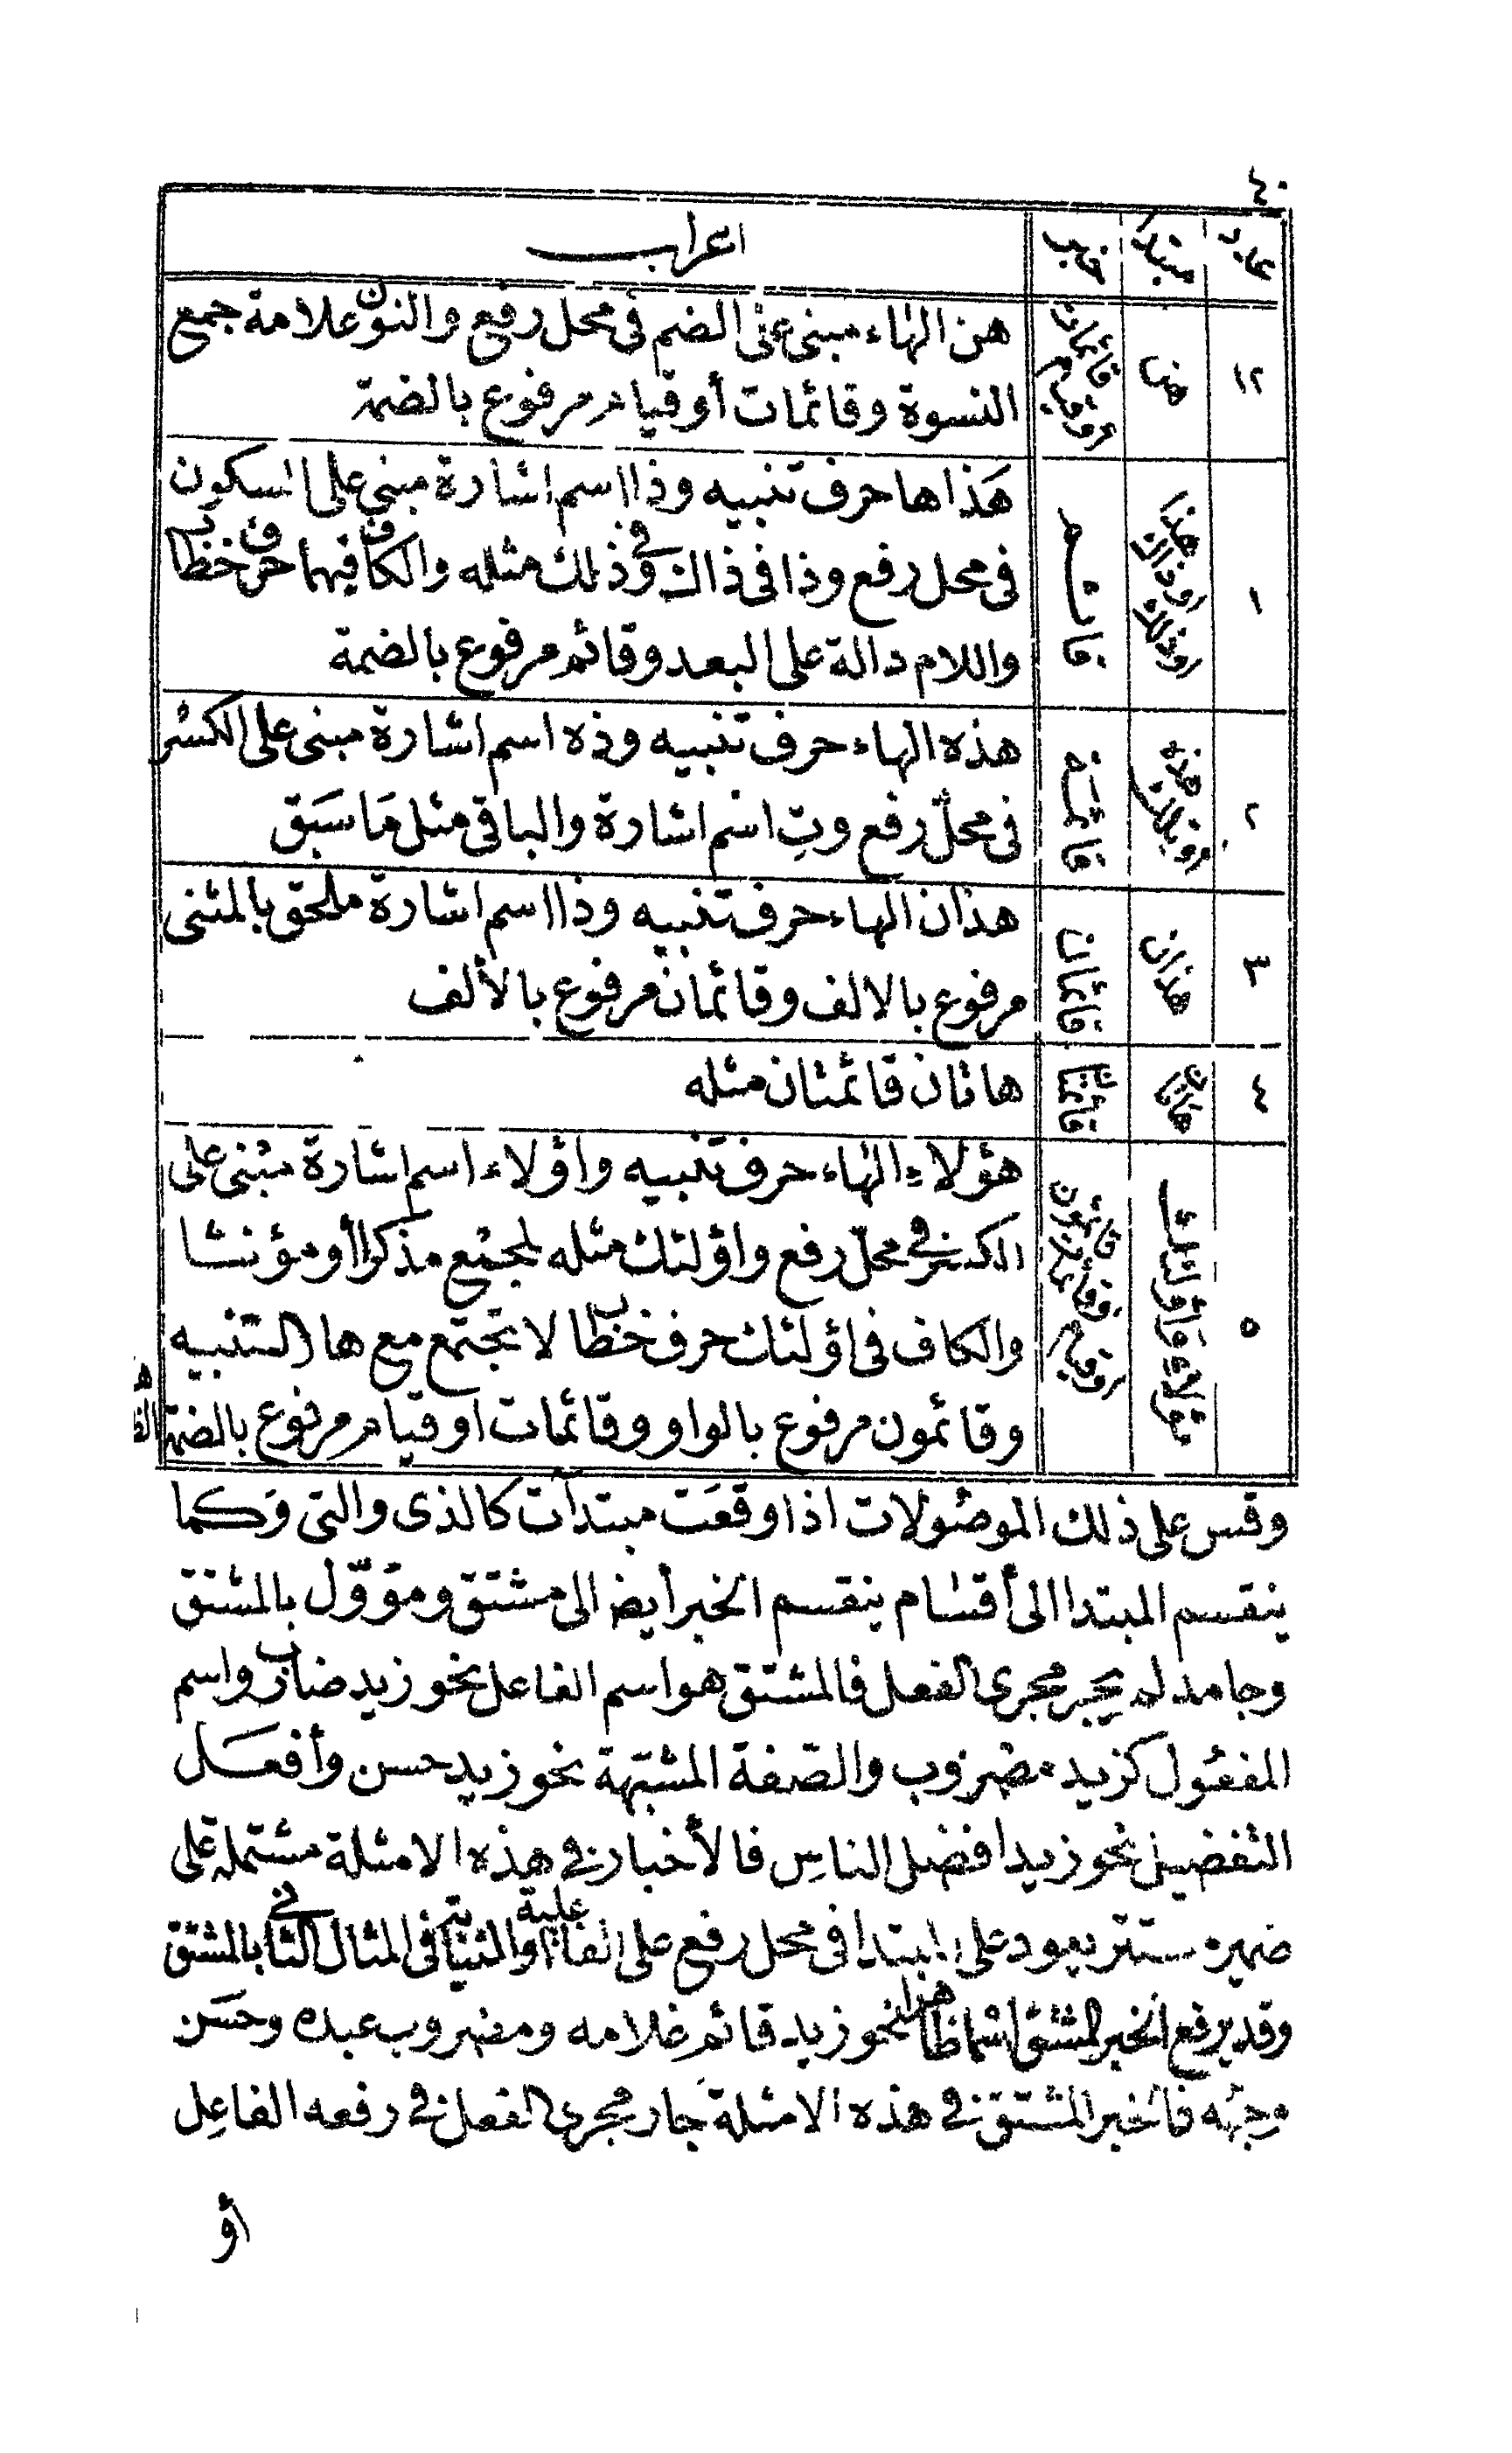 ٤٠
عدد مبتدأ خبر اعراب
١٢ هن قائمات أوقيام هن الهاء مبنى على الضم فى محل رفع والنون علامة جمع
النسوة وقائمات أوقيام مرفوع بالضمة
١ هذا أوذاك أوذلك قائم هَذا ها حرف تنبيه وذا اسم اشارة مبنى على السكون
فى محل رفع وذا فى ذاك وفى ذلك مثله والكاف فيهما حرف خطاب
واللام دالة على البعد وقائم مرفوع بالضمة
٢ هذه أوتلك قائمة هذه الهاء حرف تنبيه وذه اسم اشارة مبنى على الكسْر
فى محلّ رفع وتِ اسْم اشارة والباقى مثل مَا سَبَق
٣ هذان قائمان هذان الهاء حرف تنبيه وذا اسم اشارة ملحق بالمثنى
مرفوع بالالف وقائمان مرفوع بالألف
٤ هاتان قائمتان هاتان قائمتان مثله
٥ هؤلاء وأولئك قائمون أوقائمات أوقيام هؤلاء الهاء حرف تنبيه واؤلاء اسم اشارة مبْنى على
الكسر فى محلّ رفع واؤلئك مثله لجمع مذكرا أو مؤنثا
والكاف فى اؤلئك حرف خطاب لا تجتمع مع ها التنبيه
وقائمون مرفوع بالواو وقائمات اوقيام مرفوع بالضمة
وقس على ذلك الموصُولات اذا وقعَت مبتدآت كالذى والتى وَكما
ينقسم المبتدا الى أقسام ينقسم الخبر أيضا الى مشتق ومؤوّل بالمشتق
وجامد لم يجر مجرى الفعل فالمشتق هو اسم الفاعل نحو زيد ضارب واسم
المفعُول كزيد مضروب والصّفة المشبّهة نحو زيد حسن وأفعَل
التفضيل نحو زيد افضل الناسِ فالأخبار فى هذه الامثلة مشتملة على
ضمير مستتر يعود على المبتدا فى محل رفع على الفاعلية او النيابة فى المثال الثانى بالمشتق
وقد يرفع الخبر المشتق اسْما ظاهرا نحو زيد قائم غلامه ومضروب عبده وحَسَن
وجهُه فالخبر المشتق فى هذه الامثلة جار مجرى الفعل فى رفعه الفاعِل
أو